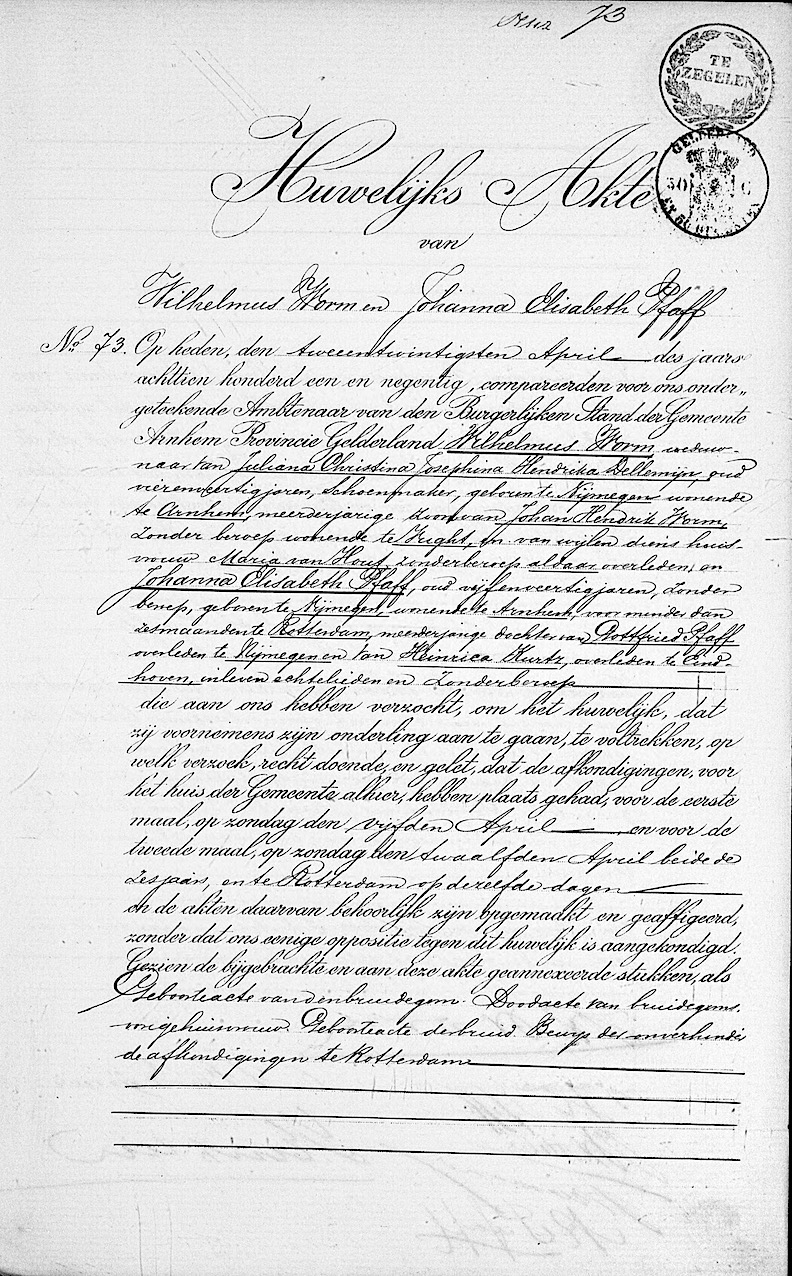 73
TE
ZEGELEN
GELDERLAND
50 C
Huwelijks Akte
van
Wilhelmus Worm en Johanna Elisabeth Pfaff
No. 73. Op heden, den tweeentwintigsten April des jaars
achttien honderd een en negentig, compareerden voor ons onder„
geteekende Ambtenaar van den Burgerlijken Stand der Gemeente
Arnhem Provincie Gelderland Wilhelmus Worm, weduw-
naar van Juliana Christina Josephina Hendrika Dellemijn, oud
vierenveertig jaren, Schoenmaker, geboren te Nijmegen wonende
te Arnhem, meerderjarige zoon van Johan Hendrik Worm,
zonder beroep wonende te Vught, en van wijlen diens huis-
vrouw Maria van Hout, zonder beroep aldaar overleden, en
Johanna Elisabeth Pfaff, oud vijfenveertig jaren, zonder
beroep, geboren te Nijmegen, wonende te Arnhem, voor minder dan
zes maanden te Rotterdam, meerderjarige dochter van Gottfried Pfaff
overleden te Nijmegen en van Heinrica Kurtz, overleden te Eind-
hoven, in leven echtelieden en zonder beroep
die aan ons hebben verzocht, om het huwelijk, dat
zij voornemens zijn onderling aan te gaan, te voltrekken, op
welk verzoek, recht doende, en gelet, dat de afkondigingen, voor
het huis der Gemeente alhier, hebben plaats gehad, voor de eerste
maal, op zondag den vijfden April en voor de
tweede maal, op zondag den twaalfden April beide de
zes jaar, en te Rotterdam op dezelfde dagen
en de akten daarvan behoorlijk zijn opgemaakt en geaffigeerd,
zonder dat ons eenige oppositie tegen dit huwelijk is aangekondigd.
Gezien de bijgebrachte en aan deze akte geannexeerde stukken, als
Geboorteacte van den bruidegom. Doodacte van bruidegoms
vorige huisvrouw. Geboorteacte der bruid. Bewijs der onverhinder
de afkondigingen te Rotterdam